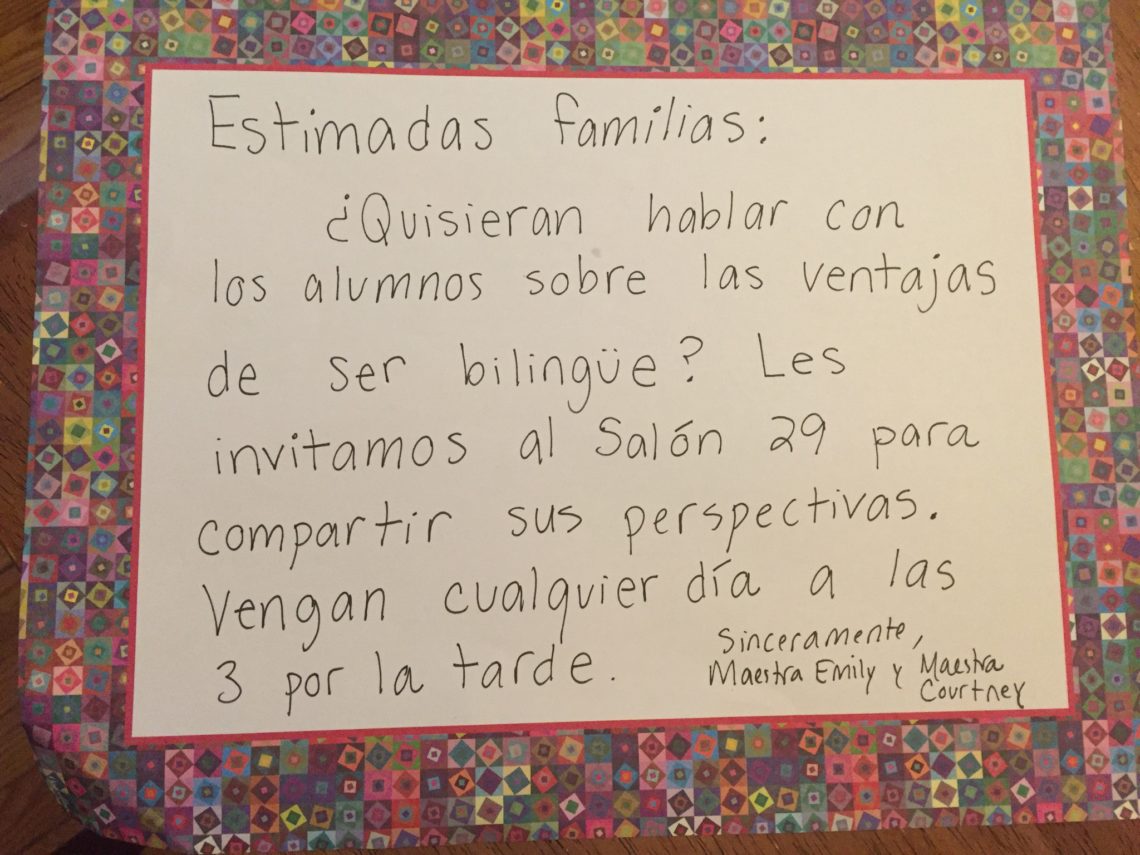 Estimadas familias:
¿Quisieran hablar con
los alumnos sobre las ventajas
de ser bilingüe? Les
invitamos al Salón 29 para
compartir sus perspectivas.
Vengan cualquier día a las
3 por la tarde.
Sinceramente,
Maestra Emily y Maestra
Courtney